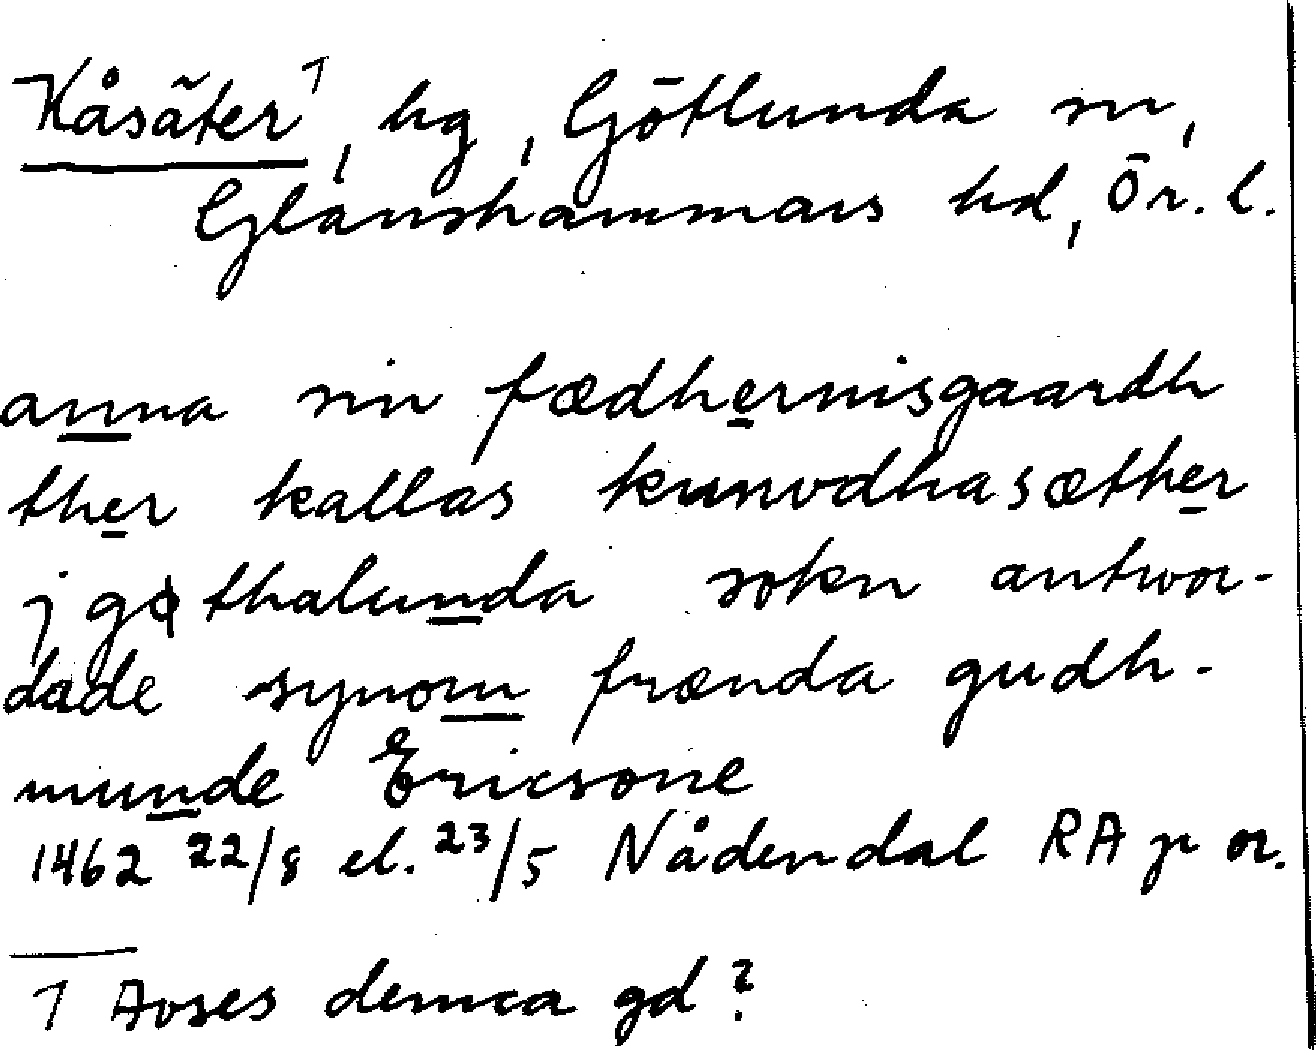 Kåsäter¹, hg, Götlunda sn,
Glanshammars hd, Ör. l.
anna sin fædhernisgaardh
ther kallas knwdhasæther
j gøthalunda sokn antwor-
dade synom frænda gudh-
munde Ericsone
1462 22/8 el. 23/5 Nådendal RA p or.
1 Avses denna gd?